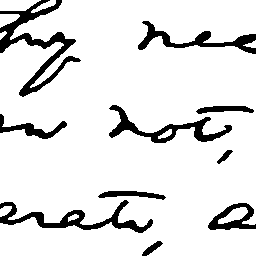 hy nee
w not,
erate, a